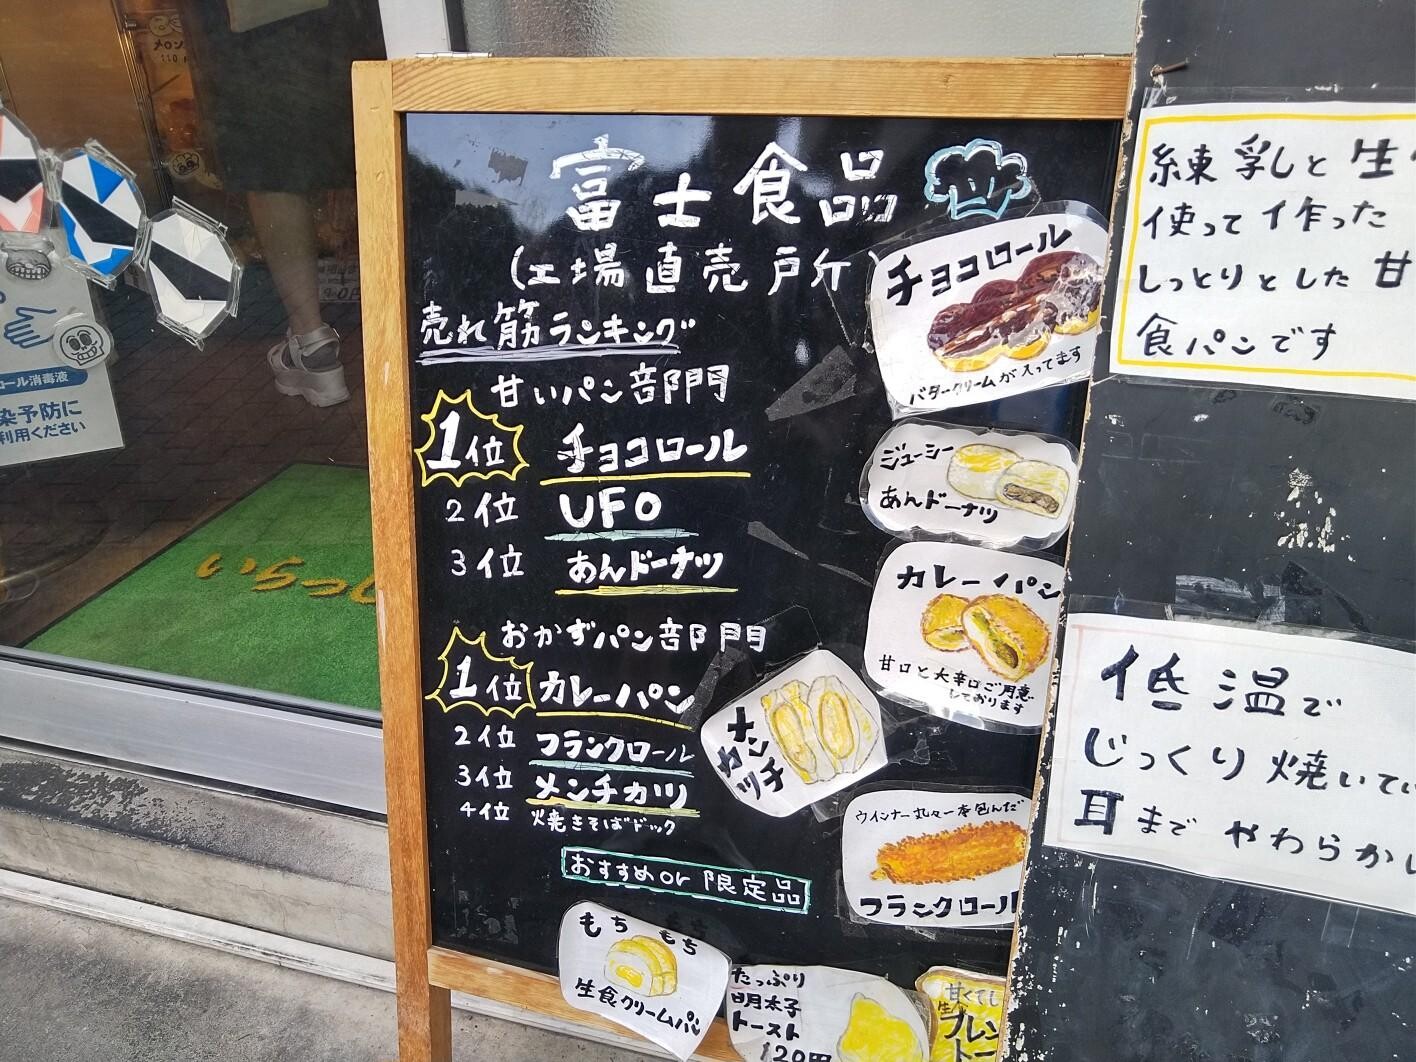 富士食品
(工場直売所)
売れ筋ランキング
甘いパン部門
1位 チョコロール
2位 UFO
3位 あんドーナツ
おかずパン部門
1位 カレーパン
2位 フランクロール
3位 メンチカツ
4位 焼きそばドック
おすすめor限定品
チョコロール
バタークリームが入ってます
ジューシー
あんドーナツ
カレーパン
甘口と大辛口ご用意
しております
メンチ
カツ
ウインナー丸々一本包んだ
フランクロール
もち もち
生食クリームパン
たっぷり
明太子
トースト
120円
甘くてし
フレン
トー
練乳しと生
使って作った
しっとりとした甘
食パンです
低温で
じっくり焼いてい
耳までやわらかい
メロン
110
コール消毒液
染予防に
利用ください
いらっ